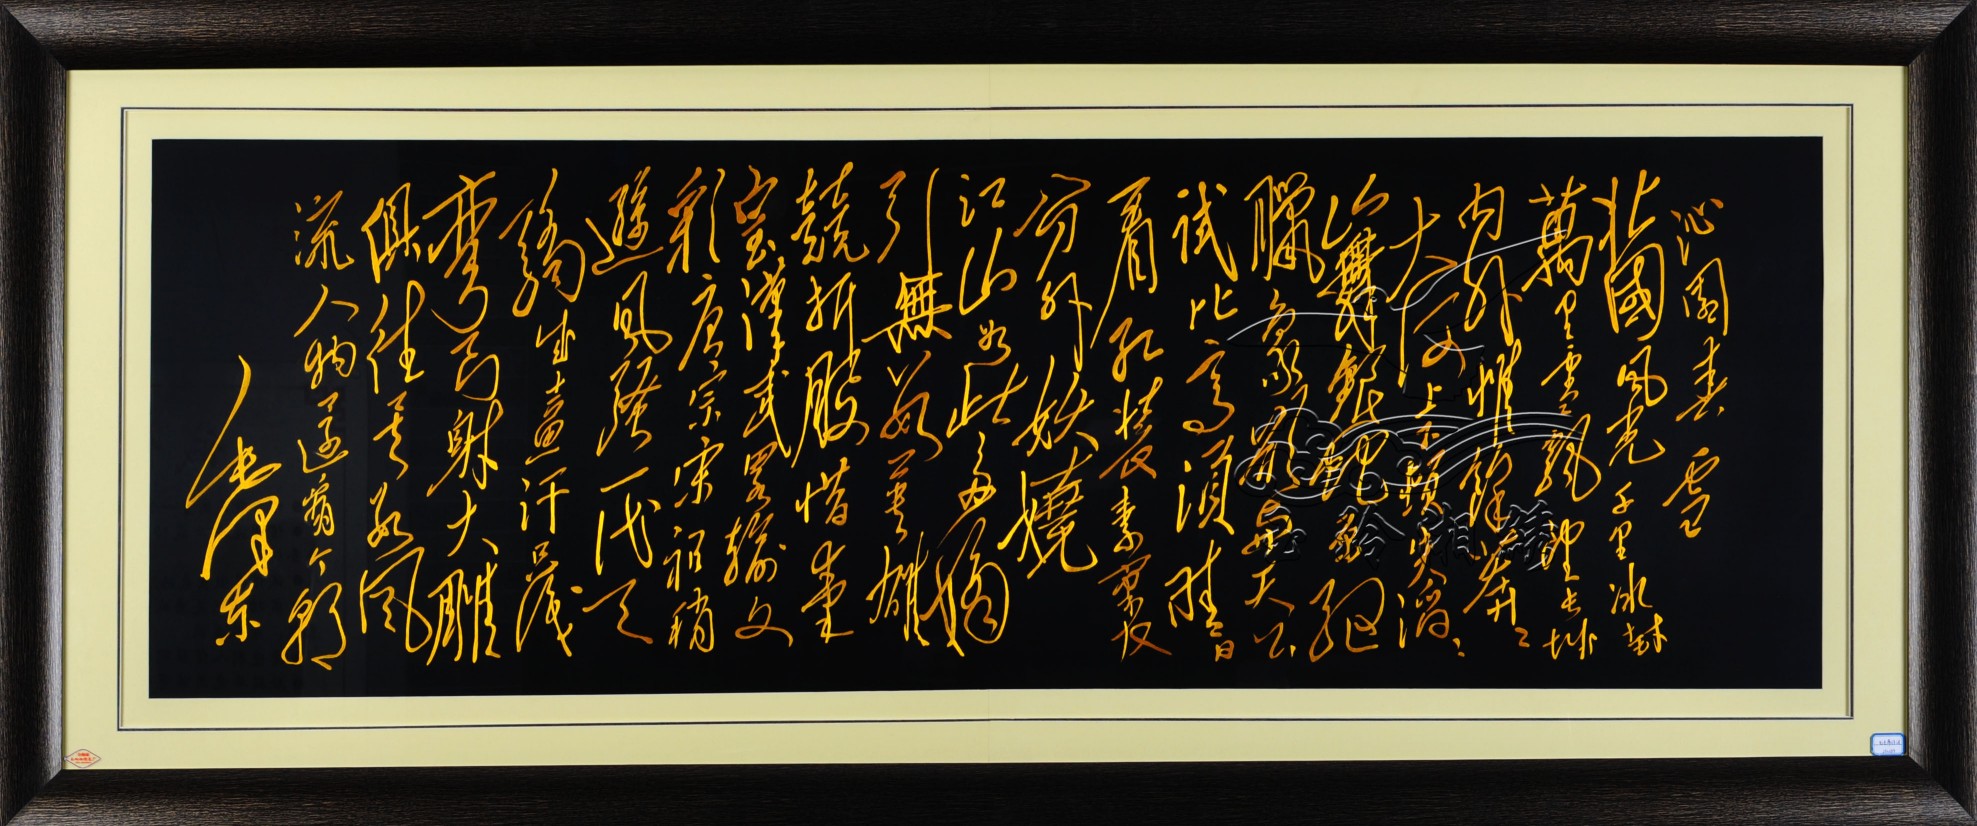 沁園春 雪
北國風光千里冰封
萬里雪飄望長城
內外惟餘莽々
大河上下頓失滔々
山舞銀蛇原驅
臘象欲與天公
試比高須晴日
看紅裝素裹
分外妖嬈
江山如此多嬌
引無數英雄
競折腰惜秦
皇漢武略輸文
彩唐宗宋祖稍
遜風騷一代天
驕成吉思汗只識
彎弓射大雕
俱往矣數風
流人物還看今朝
毛澤東